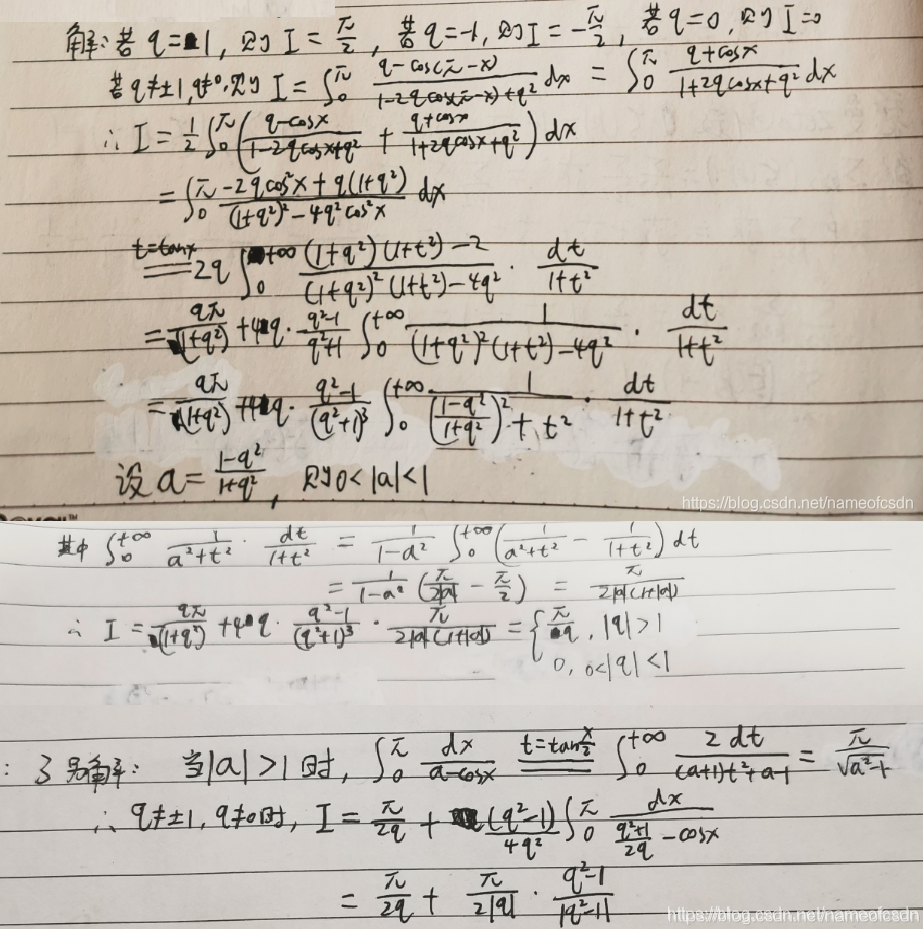 解: 若 q=1, 则 I = π/2, 若 q=-1, 则 I = -π/2, 若 q=0, 则 I=0
若 q≠±1, q≠0, 则 I = ∫₀^π (q-cos(π-x))/(1-2qcos(π-x)+q²) dx = ∫₀^π (q+cosx)/(1+2qcosx+q²) dx
∴ I = 1/2 ∫₀^π ( (q-cosx)/(1-2qcosx+q²) + (q+cosx)/(1+2qcosx+q²) ) dx
= ∫₀^π (-2qcos²x + q(1+q²))/((1+q²)² - 4q²cos²x) dx
t=tanx == 2q ∫₀^+∞ ((1+q²)(1+t²) - 2)/((1+q²)²(1+t²) - 4q²) · dt/(1+t²)
= qπ/(1+q²) + 4q · (q²-1)/(q²+1) ∫₀^+∞ 1/((1+q²)²(1+t²) - 4q²) · dt/(1+t²)
= qπ/(1+q²) + 4q · (q²-1)/(q²+1)³ ∫₀^+∞ 1/(((1-q²)/(1+q²))² + t²) · dt/(1+t²)
设 a = (1-q²)/(1+q²), 则 0<|a|<1
https://blog.csdn.net/nameofcsdn
其中 ∫₀^+∞ 1/(a²+t²) · dt/(1+t²) = 1/(1-a²) ∫₀^+∞ ( 1/(a²+t²) - 1/(1+t²) ) dt
= 1/(1-a²) ( π/(2|a|) - π/2 ) = π/(2|a|(1+|a|))
∴ I = qπ/(1+q²) + 4q · (q²-1)/(q²+1)³ · π/(2|a|(1+|a|)) = { π/q, |q|>1
0, 0<|q|<1
: 3 另解: 当|a|>1时, ∫₀^π dx/(a-cosx) t=tan x/2 == ∫₀^+∞ 2dt/((a+1)t²+a-1) = π/√(a²-1)
∴ q≠±1, q≠0时, I = π/(2q) + (q²-1)/(4q²) ∫₀^π dx/((q²+1)/(2q) - cosx)
= π/(2q) + π/(2|q|) · (q²-1)/|q²-1|
https://blog.csdn.net/nameofcsdn